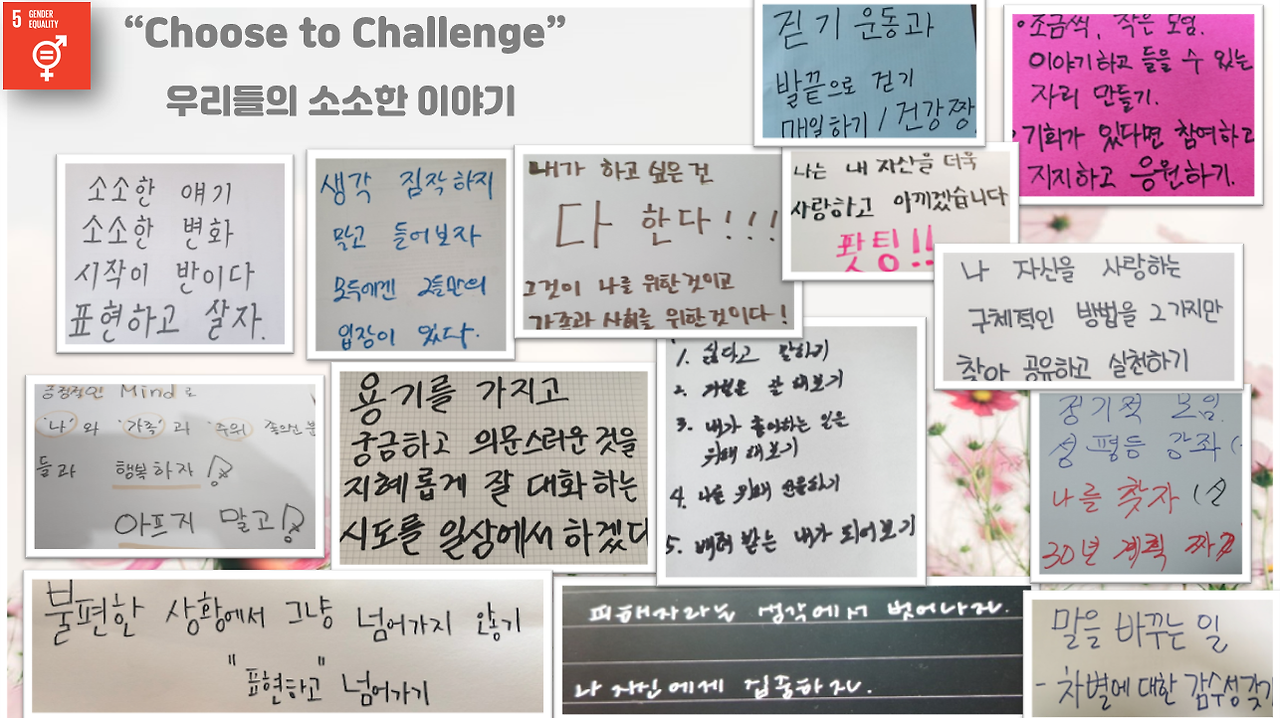 5 GENDER
EQUALITY
“Choose to Challenge”
우리들의 소소한 이야기
걷기 운동과
발끝으로 걷기
매일하기 / 건강짱
• 조금씩, 작은 모임.
이야기하고 들을 수 있는
자리 만들기.
• 기회가 있다면 참여하고
지지하고 응원하기.
소소한 얘기
소소한 변화
시작이 반이다
표현하고 살자.
생각 짐작하지
말고 들어보자
모두에겐 그들만의
입장이 있다.
내가 하고 싶은건
다 한다!!!
그것이 나를 위한것이고
가족과 사회를 위한것이다!
나는 내 자산을 더욱
사랑하고 아끼겠습니다
퐛팅!!
나 자산을 사랑하는
구체적인 방법을 2가지만
찾아 공유하고 실천하기
긍정적인 Mind로
'나'와 '가족'과 '주위' 좋으신 분
들과 행복하자!
아프지 말고!
용기를 가지고
궁금하고 의문스러운 것을
지혜롭게 잘 대화하는
시도를 일상에서 하겠다
1. 싫다고 말하기
2. 거절을 잘 해보기
3. 내가 좋아하는 일을
위해 해보기
4. 나를 위해 선물하기
5. 배려 받는 내가 되어보기
정기적 모임.
성 평등 강좌 (
나를 찾자 (
30년 계획 짜기
불편한 상황에서 그냥 넘어가지 않기
"표현하고" 넘어가기
피해자라는 생각에서 벗어나자.
나 자신에게 집중하자.
말을 바꾸는 일
- 차별에 대한 감수성갖기